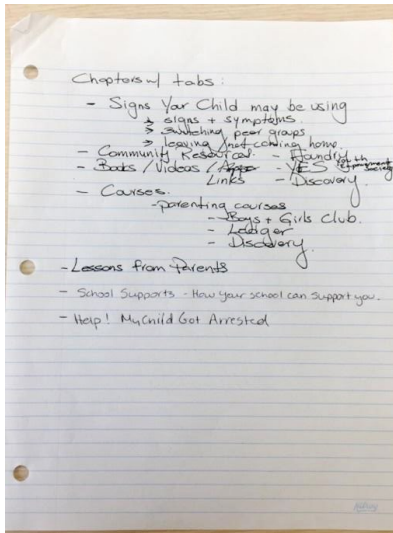 Chapters w/ tabs:
- Signs Your Child may be using
> signs + symptoms.
> switching peer groups
> leaving / not coming home.
- Community Resources: - Foundry
- Books / Videos / Links - YES Youth Empowerment Society
- Discovery.
- Courses.
- parenting courses
- Boys + Girls Club.
- Ledger
- Discovery.
- Lessons from Parents
- School Supports - How your school can support you.
- Help! My Child Got Arrested